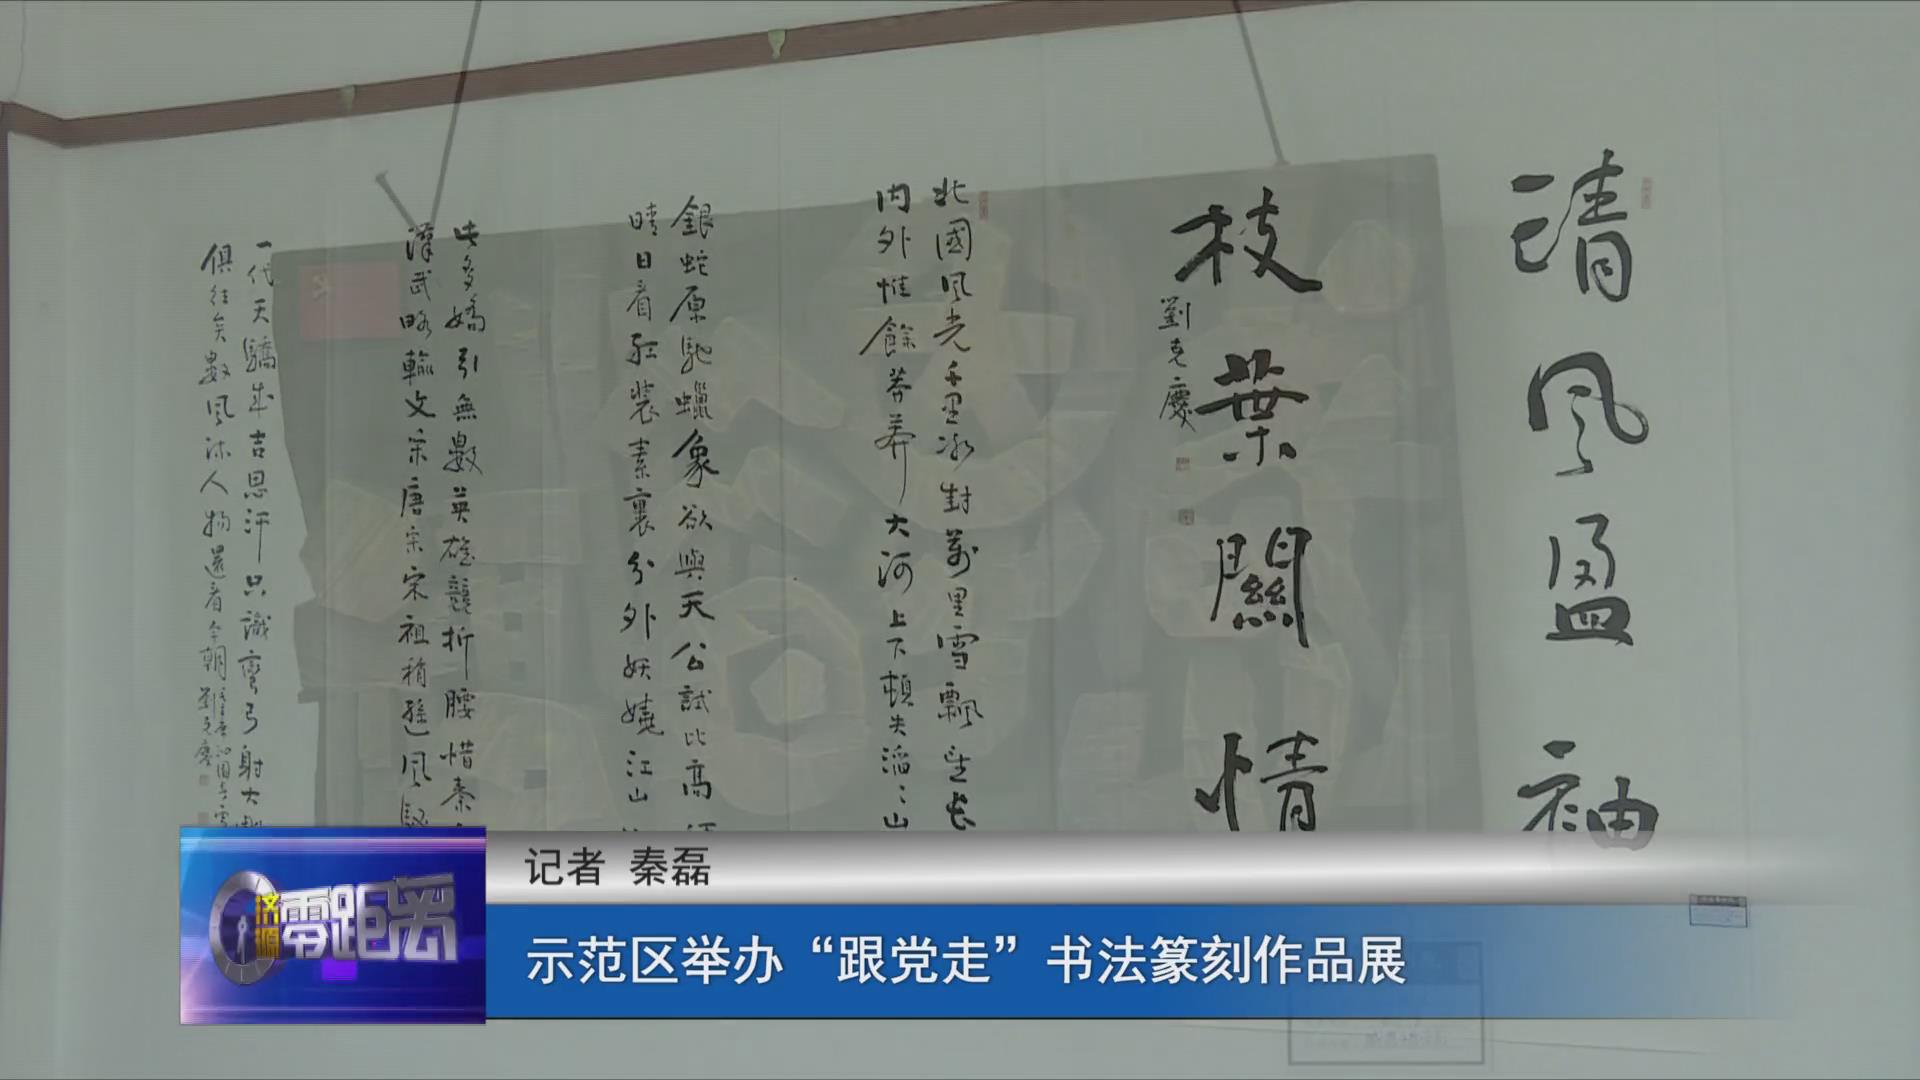 清風盈袖
枝葉關情
劉克慶
北國風光千里冰封萬里雪飄望長
內外惟餘莽莽大河上下頓失滔〻山
銀蛇原馳蠟象欲與天公試比高
晴日看紅裝素裹分外妖嬈江山
此多嬌引無數英雄競折腰惜秦
漢武略輸文采唐宗宋祖稍遜風騷
一代天驕成吉思汗只識彎弓射大雕
俱往矣數風流人物還看今朝
劉克慶
记者 秦磊
济源
零距离
示范区举办“跟党走”书法篆刻作品展